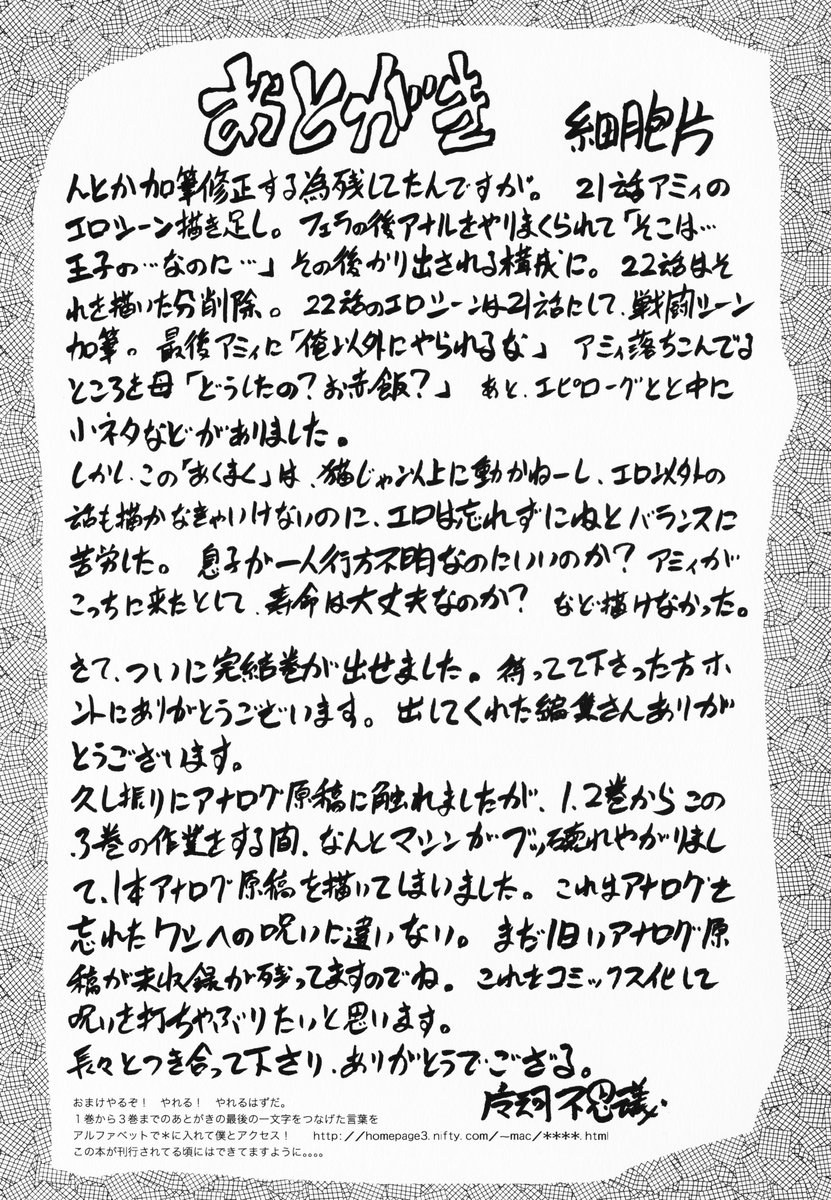 あとがき
細胞片
んとか加筆修正する為残してたんですが。 21話アミィの
エロシーン描き足し。フェラの後アナルをやりまくられて「そこは…
王子の…なのに…」その後かり出される構成に。22話はそ
れを描いた分削除。22話のエロシーンは21話にして、戦闘シーン
加筆。最後アミィに「俺以外にやられるな」 アミィ落ちこんでる
ところを母「どうしたの?お赤飯?」 あと、エピローグとと中に
小ネタなどがありました。
しかし、この「あくまく」は、猫じゃン以上に動かねーし、エロ以外の
話も描かなきゃいけないのに、エロは忘れずにねとバランスに
苦労した。息子が一人行方不明なのにいいのか?アミィが
こっちに来たとして、寿命は大丈夫なのか? など描けなかった。
さて、ついに完結巻が出せました。待ってて下さった方ホ
ントにありがとうございます。出してくれた編集さんありが
とうございます。
久し振りにアナログ原稿に触れましたが、1、2巻からこの
3巻の作業をする間、なんとマシンがブッ壊れやがりまし
て、1本アナログ原稿を描いてしまいました。これはアナログを
忘れたワシへの呪いに違いない。まだ旧いアナログ原
稿が未収録が残ってますのでね。これをコミックス化して
呪いを打ちやぶりたいと思います。
長々とつき合って下さり、ありがとうでござる。
不思議
おまけやるぞ! やれる! やれるはずだ。
1巻から3巻までのあとがきの最後の一文字をつなげた言葉を
アルファベットで*に入れて僕とアクセス! http://homepage3.nifty.com/~mac/****.html
この本が刊行されてる頃にはできてますように。。。。